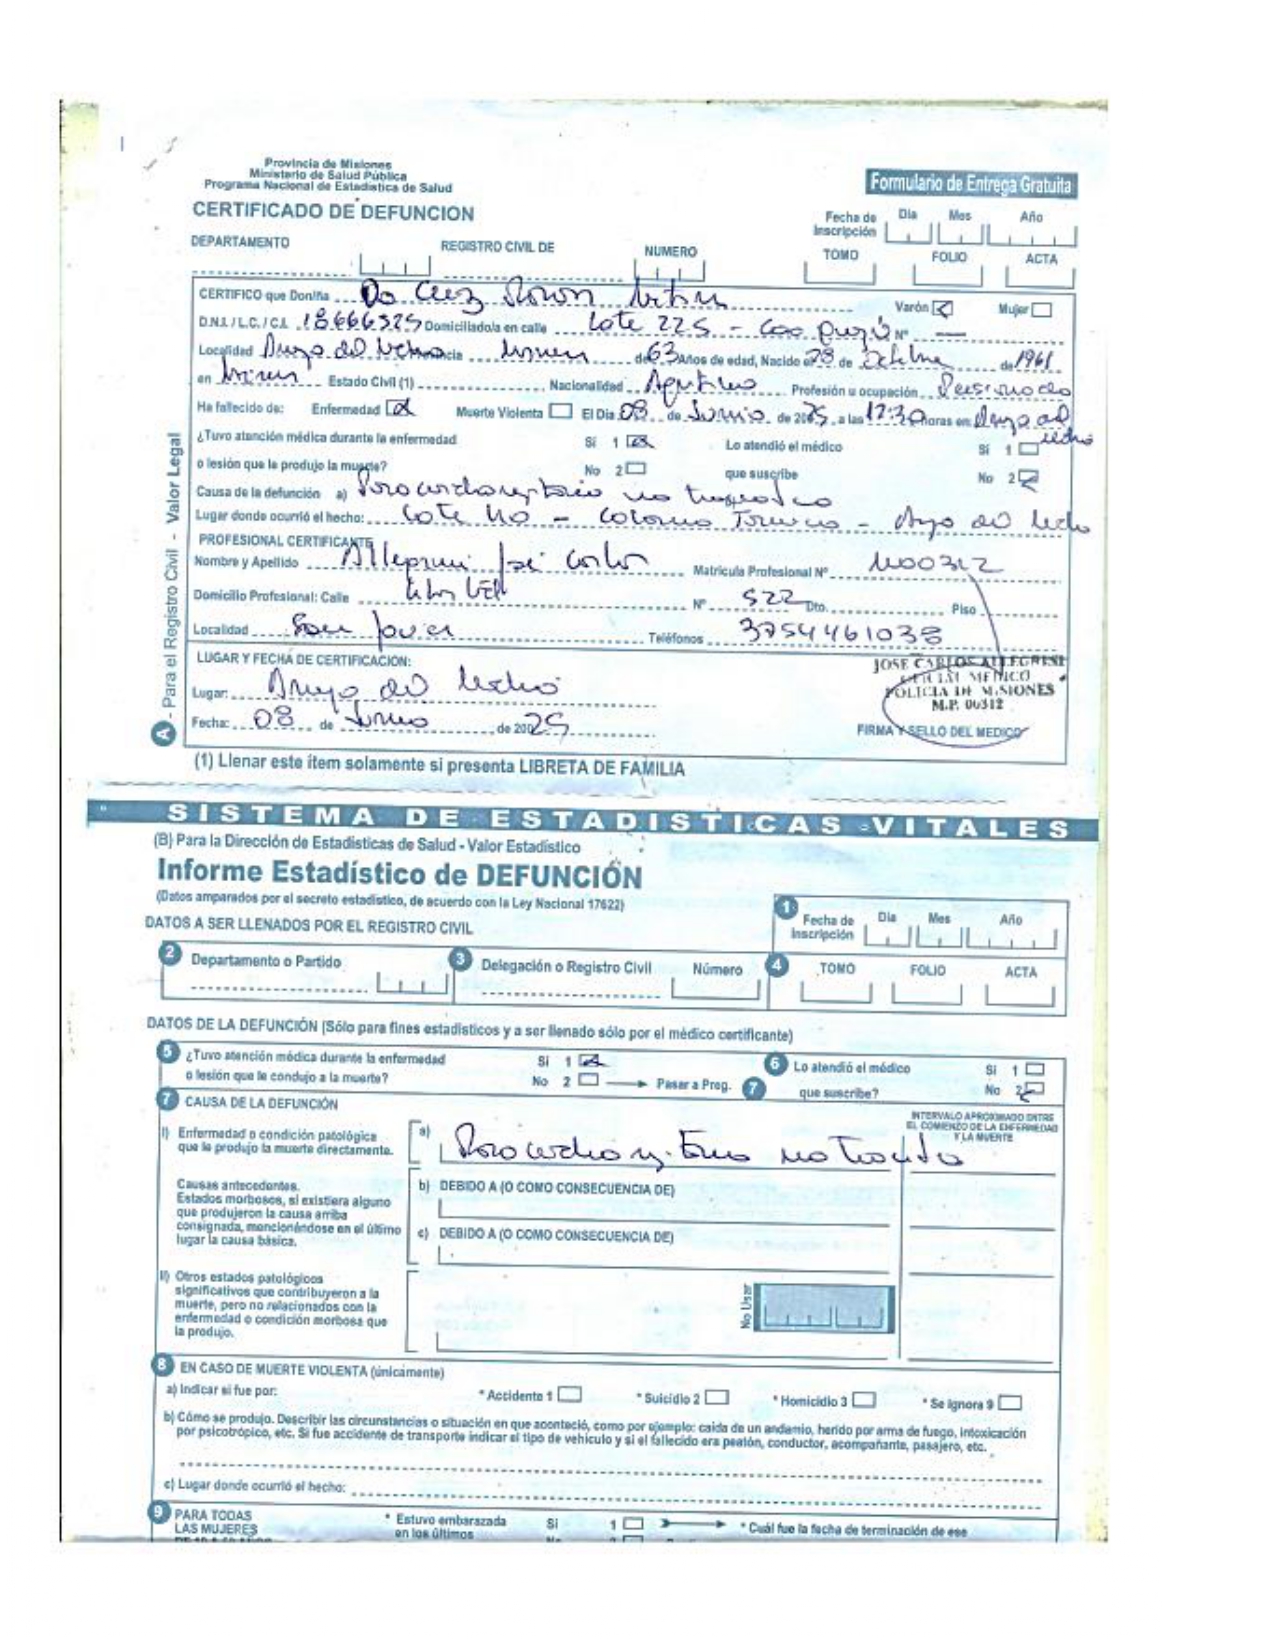 Provincia de Misiones
Ministerio de Salud Pública
Programa Nacional de Estadística de Salud
Formulario de Entrega Gratuita
CERTIFICADO DE DEFUNCION
Fecha de Inscripción Dia Mes Año
DEPARTAMENTO REGISTRO CIVIL DE NUMERO TOMO FOLIO ACTA
CERTIFICO que Don/ña Da Cruz Varón Mujer
D.N.I. / L.C. / C.I. 18666525 Domiciliado/a en calle Lote 225 - Nº
Localidad Arroyo del Medio de 63 Años de edad, Nacido el 28 de Octubre de 1961
en Misiones Estado Civil (1) Nacionalidad Argentino Profesión u ocupación Pensionado
Ha fallecido de: Enfermedad Muerte Violenta El Dia 08 de Junio de 2025, a las 17:30 horas en Arroyo del Medio
¿Tuvo atención médica durante la enfermedad Si 1 Lo atendió el médico Si 1
o lesión que le produjo la muerte? No 2 que suscribe No 2
Causa de la defunción a) Paro cardiorespiratorio no traumatico
Lugar donde ocurrió el hecho: Lote - Colonia - Arroyo del Medio
PROFESIONAL CERTIFICANTE
Nombre y Apellido Allegrini José Carlos Matricula Profesional Nº M00312
Domicilio Profesional: Calle Nº 522 Dto. Piso
Localidad San Javier Teléfonos 3754461038
LUGAR Y FECHA DE CERTIFICACION:
JOSE CARLOS ALLEGRINI
OFICIAL MEDICO
POLICIA DE MISIONES
M.P. 00312
Lugar: Arroyo del Medio
Fecha: 08 de Junio de 2025
FIRMA Y SELLO DEL MEDICO
A - Para el Registro Civil - Valor Legal
(1) Llenar este item solamente si presenta LIBRETA DE FAMILIA
SISTEMA DE ESTADISTICAS VITALES
(B) Para la Dirección de Estadisticas de Salud - Valor Estadístico
Informe Estadístico de DEFUNCIÓN
(Datos amparados por el secreto estadístico, de acuerdo con la Ley Nacional 17622)
1 Fecha de Inscripción Dia Mes Año
DATOS A SER LLENADOS POR EL REGISTRO CIVIL
2 Departamento o Partido 3 Delegación o Registro Civil Número 4 TOMO FOLIO ACTA
DATOS DE LA DEFUNCIÓN (Sólo para fines estadísticos y a ser llenado sólo por el médico certificante)
5 ¿Tuvo atención médica durante la enfermedad Si 1 6 Lo atendió el médico Si 1
o lesión que le condujo a la muerte? No 2 Pasar a Preg. 7 que suscribe? No 2
7 CAUSA DE LA DEFUNCIÓN
INTERVALO APROXIMADO ENTRE
EL COMIENZO DE LA ENFERMEDAD
Y LA MUERTE
I) Enfermedad o condición patológica
que le produjo la muerte directamente.
a) Paro cardio no
Causas antecedentes.
Estados morbosos, si existiera alguno
que produjeron la causa arriba
consignada, mencionándose en el último
lugar la causa básica.
b) DEBIDO A (O COMO CONSECUENCIA DE)
c) DEBIDO A (O COMO CONSECUENCIA DE)
II) Otros estados patológicos
significativos que contribuyeron a la
muerte, pero no relacionados con la
enfermedad o condición morbosa que
la produjo.
No Usar
8 EN CASO DE MUERTE VIOLENTA (únicamente)
a) Indicar si fue por: * Accidente 1 * Suicidio 2 * Homicidio 3 * Se ignora 9
b) Cómo se produjo. Describir las circunstancias o situación en que aconteció, como por ejemplo: caida de un andamio, herido por arma de fuego, intoxicación
por psicotrópico, etc. Si fue accidente de transporte indicar el tipo de vehículo y si el fallecido era peatón, conductor, acompañante, pasajero, etc.
c) Lugar donde ocurrió el hecho:
9 PARA TODAS * Estuvo embarazada Si 1 * Cuál fue la fecha de terminación de ese
LAS MUJERES en los últimos